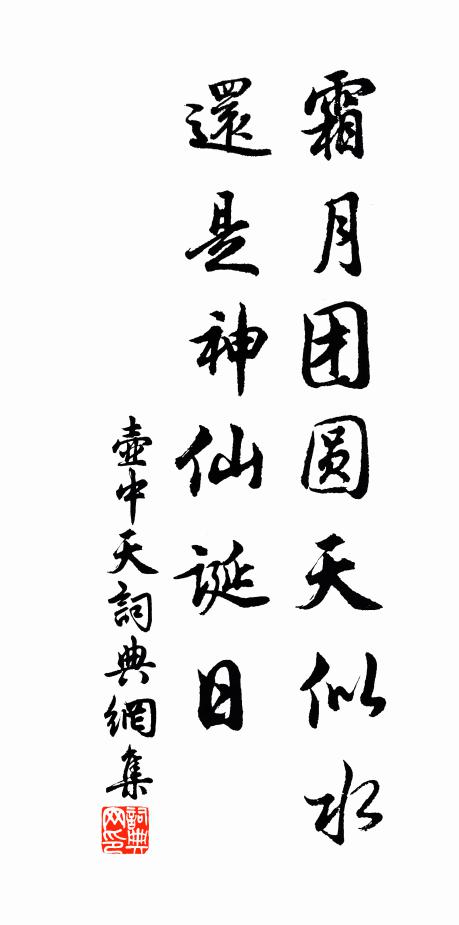 霜月团圆天似水
還是神仙誕日
壺中天詞典網集
詞典网印